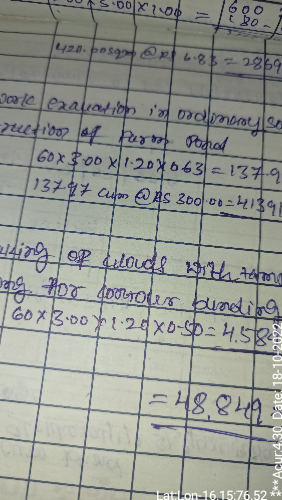 ×3.00×1.00 = 600
180-
420.00sqm @ RS 6.83 = 2869
work exavation in ordinary so
ruction of Farm Pond
60×3.00×1.20×0.63 = 137.9
137.97 cum @ RS 300.00 = 41391
of clouds with
For bunding
60×3.00×1.20×0.50 = 4.58
= 48.849
Lat Lon 16.15,76.52 *** Acur 4.30 Date: 18-10-2022